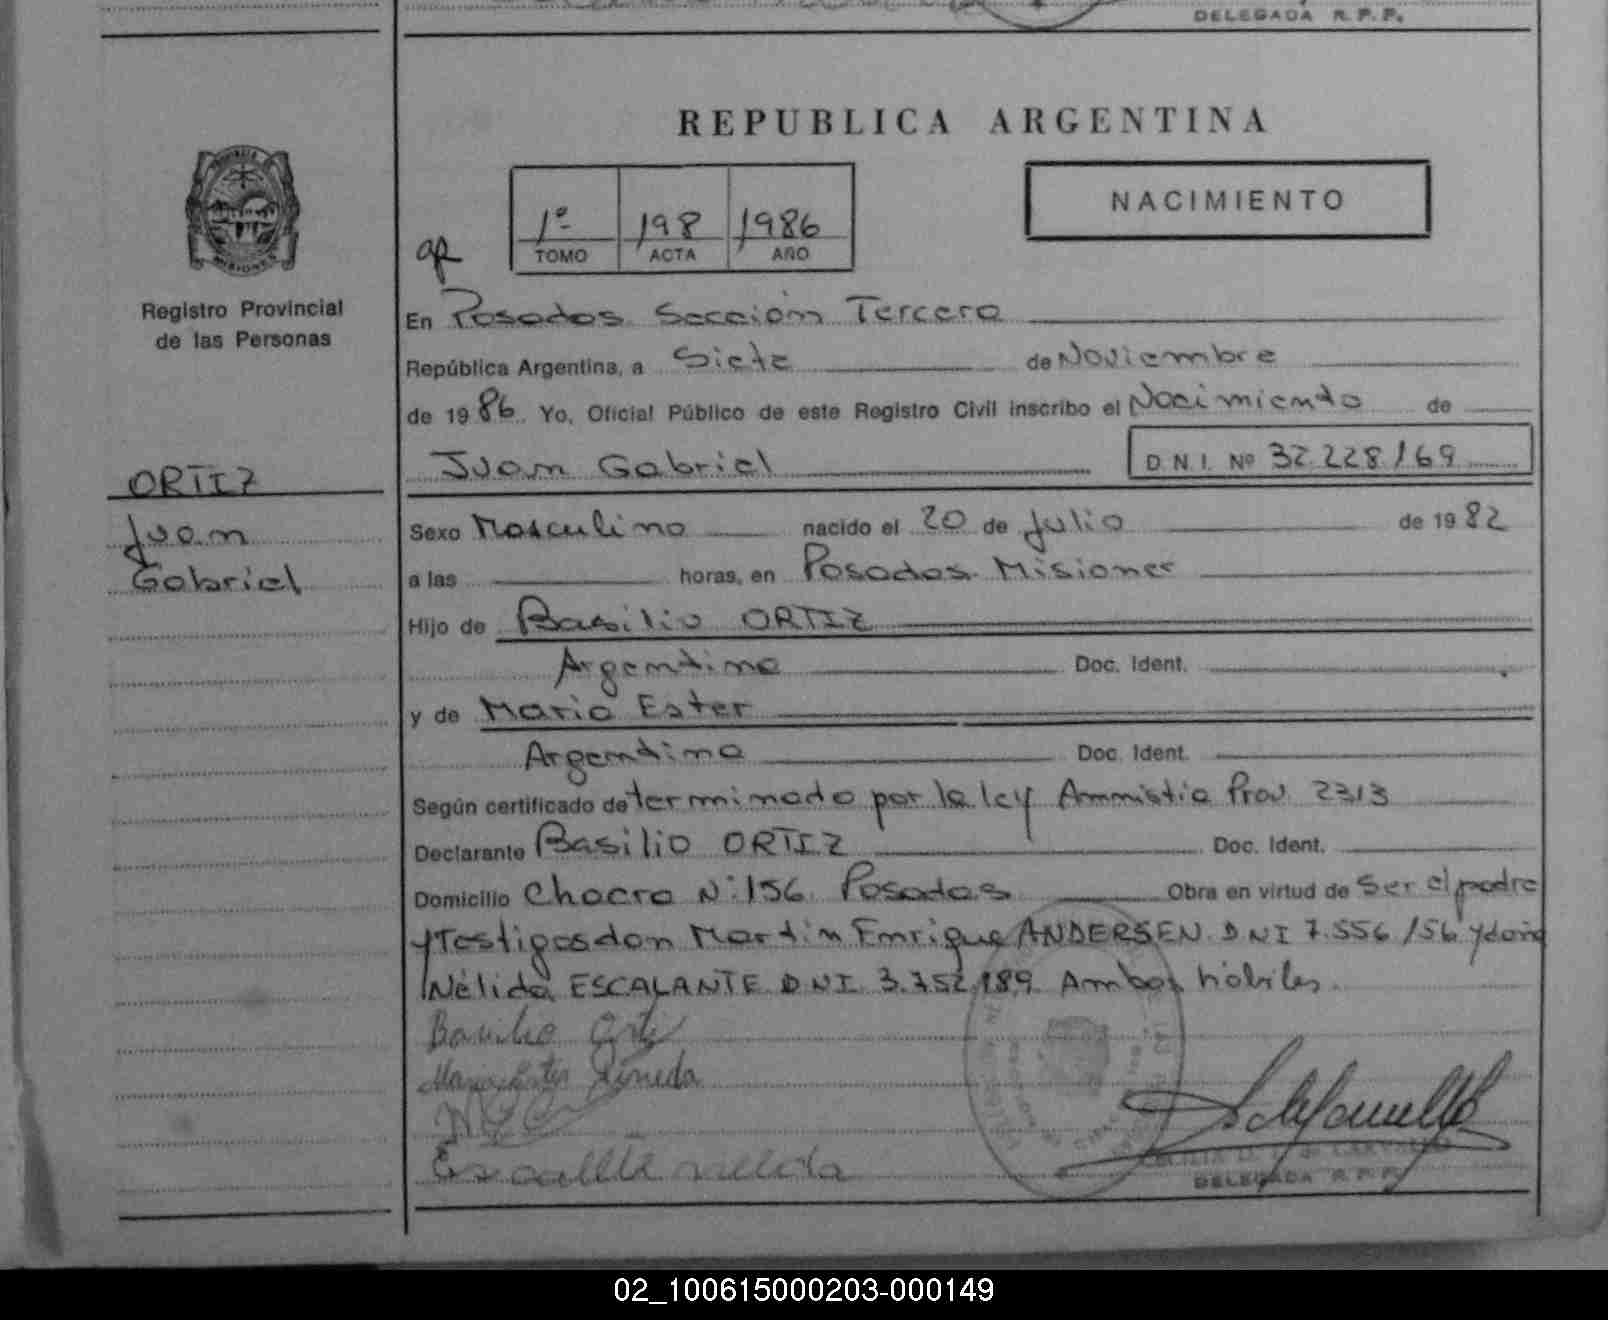 DELEGADA R. P. P.
REPUBLICA ARGENTINA
PROVINCIA
MISIONES
Registro Provincial
de las Personas
1º 198 1986
TOMO ACTA AÑO
NACIMIENTO
En Posadas Sección Tercera
República Argentina, a Siete de Noviembre
de 1986. Yo, Oficial Público de este Registro Civil inscribo el Nacimiento de
Juan Gabriel D.N.I. Nº 32.228/69
ORTIZ
Juan
Gabriel
Sexo Masculino nacido el 20 de Julio de 1982
a las horas, en Posadas Misiones
Hijo de Basilio ORTIZ
Argentino Doc. Ident.
y de Maria Ester
Argentina Doc. Ident.
Según certificado determinado por la ley Ammistia Prov. 2313
Declarante Basilio ORTIZ Doc. Ident.
Domicilio Chacra Nº 156 Posadas Obra en virtud de Ser el padre
y Testigos don Martin Enrique ANDERSEN DNI 7.556/56 y doña
Nélida ESCALANTE DNI 3.752.189. Ambos hábiles.
Basilio Ortiz
Maria Ester Pineda
DELEGADA R. P. P.
02_100615000203-000149